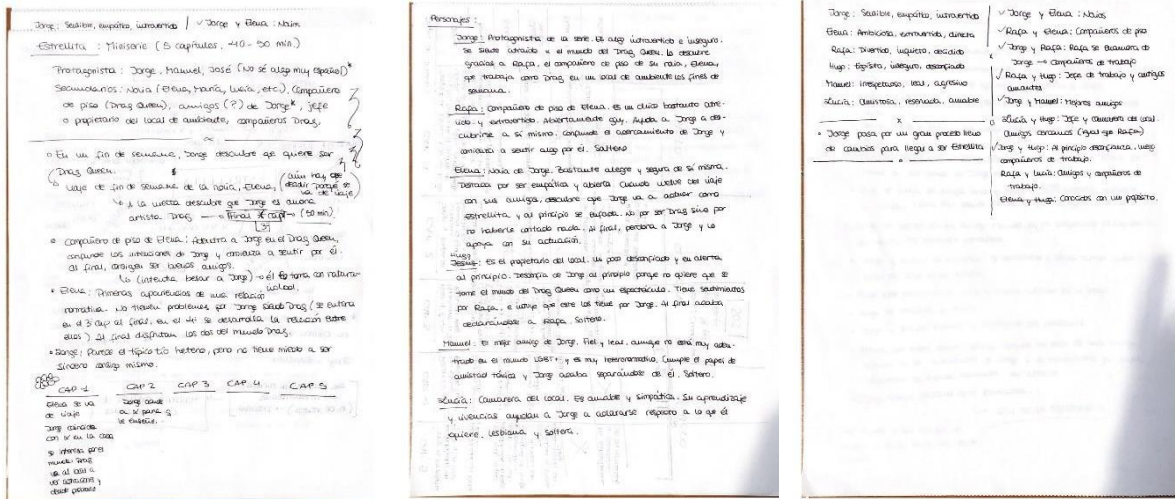 Jorge: Sensible, empático, introvertido / ✓ Jorge y Elena: Novios
Estrellita: Miniserie (5 capítulos, ~40-50 min.)
Protagonista: Jorge, Manuel, José (No sé algo muy español)*
Secundarios: Novia (Elena, María, Lucía, etc.), compañero
de piso (Drag Queen), amigos (?) de Jorge*, jefe
o propietario del local de ambiente, compañeros Drag.
En un fin de semana, Jorge descubre que quiere ser
Drag Queen.
Viaje de fin de semana de la novia, Elena, (aún hay que
decidir porqué se
va de viaje)
A la vuelta descubre que Jorge es ahora
artista Drag → Final cap → (50 min)
3
• Compañero de piso de Elena: Adentra a Jorge en el Drag Queen,
confunde las intenciones de Jorge y comienza a sentir por él.
Al final, consiguen ser buenos amigos.
(intenta besar a Jorge) → él
• Elena: Primeras apariencias de una relación
normativa. No tienen problemas por Jorge siendo Drag (se entera
en el 3 cap al final, en el 4º se desarrolla la relación entre
ellos) Al final disfrutan los dos del mundo Drag.
• Jorge: Parece el típico tío hetero, pero no tiene miedo a ser
sincero consigo mismo.
CAP 1 CAP 2 CAP 3 CAP 4 CAP 5
Elena se va
de viaje
Jorge coincide
con x en la casa
se interesa por el
mundo Drag
va al local a
ver actuaciones y
Jorge acude
a x para q
le enseñe.
Personajes:
Jorge: Protagonista de la serie. Es algo introvertido e inseguro.
Se siente atraído x el mundo del Drag Queen. Lo descubre
gracias a Rafa, el compañero de piso de su novia, Elena,
que trabaja como Drag en un local de ambiente los fines de
semana.
Rafa: Compañero de piso de Elena. Es un chico bastante atre-
vido y extrovertido. Abiertamente gay. Ayuda a Jorge a des-
cubrirse a sí mismo. Confunde el acercamiento de Jorge y
comienza a sentir algo por él. Soltero
Elena: Novia de Jorge. Bastante alegre y segura de sí misma.
Destaca por ser empática y abierta. Cuando vuelve del viaje
con sus amigas, descubre que Jorge va a actuar como
Estrellita, y al principio se enfada. No por ser Drag sino por
no haberle contado nada. Al final, perdona a Jorge y lo
apoya con su actuación.
Hugo
Jesús: Es el propietario del local. Un poco desconfiado y en alerta
al principio. Desconfía de Jorge al principio porque no quiere que se
tome el mundo del Drag Queen como un espectáculo. Tiene sentimientos
por Rafa, e intuye que este los tiene por Jorge. Al final acaba
declarándose a Rafa. Soltero.
Manuel: El mejor amigo de Jorge. Fiel y leal, aunque no está muy aden-
trado en el mundo LGBT+ y es muy heteronormativo. Cumple el papel de
amistad tóxica y Jorge acaba separándose de él. Soltero.
Lucía: Camarera del local. Es amable y simpática. Su aprendizaje
y vivencias ayudan a Jorge a aclararse respecto a lo que él
quiere. Lesbiana y soltera.
Jorge: Sensible, empático, introvertido
Elena: Ambiciosa, extrovertida, directa
Rafa: Divertido, inquieto, decidido
Hugo: Egoísta, inseguro, desconfiado
Manuel: Irrespetuoso, leal, agresivo
Lucía: Amistosa, reservada, amable
x
• Jorge pasa por un gran proceso lleno
de cambios para llegar a ser Estrellita
✓ Jorge y Elena: Novios
✓ Rafa y Elena: Compañeros de piso
✓ Jorge y Rafa: Rafa se enamora de
Jorge → Compañeros de trabajo
✓ Rafa y Hugo: Jefe de trabajo y antiguos
amantes
✓ Jorge y Manuel: Mejores amigos
Lucía y Hugo: Jefe y camarera del local.
Amigos cercanos (igual que Rafa)
✓ Jorge y Hugo: Al principio desconfianza, luego
compañeros de trabajo.
Rafa y Lucía: Amigos y compañeros de
trabajo.
Elena y Hugo: Conocidos con un propósito.